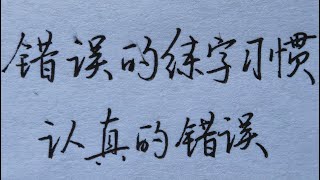 错误的练字习惯
认真的错误